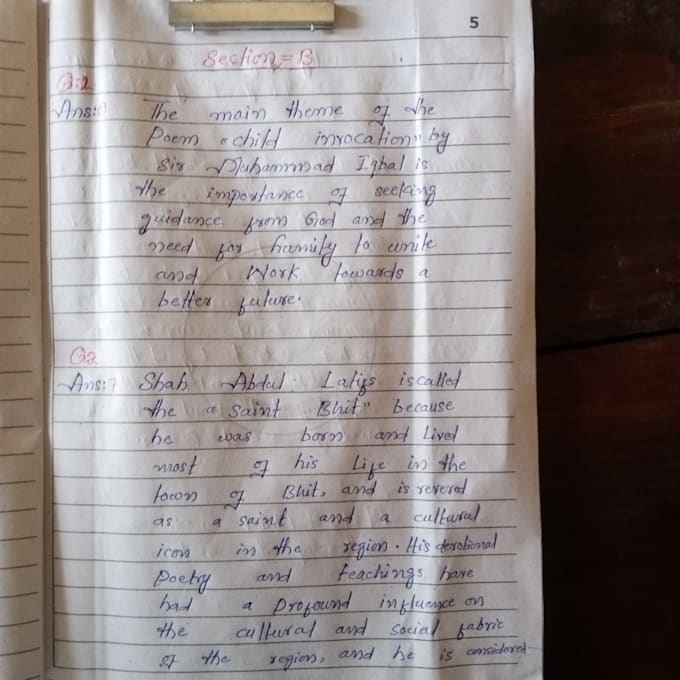 5
Section = B
Q:2
Ans:
The main theme of the
Poem "child invocation" by
Sir Muhammad Iqbal is
the importance of seeking
guidance from God and the
need for humity to unite
and Work towards a
better future.
Q2
Ans:7 Shah Abdul Latifs is called
the "Saint Bhit" because
he was born and Lived
most of his Life in the
town of Bhit, and is revered
as a saint and a cultural
icon in the region. His devotional
Poetry and teachings have
had a Profound influence on
the cultural and social fabric
of the region, and he is considered